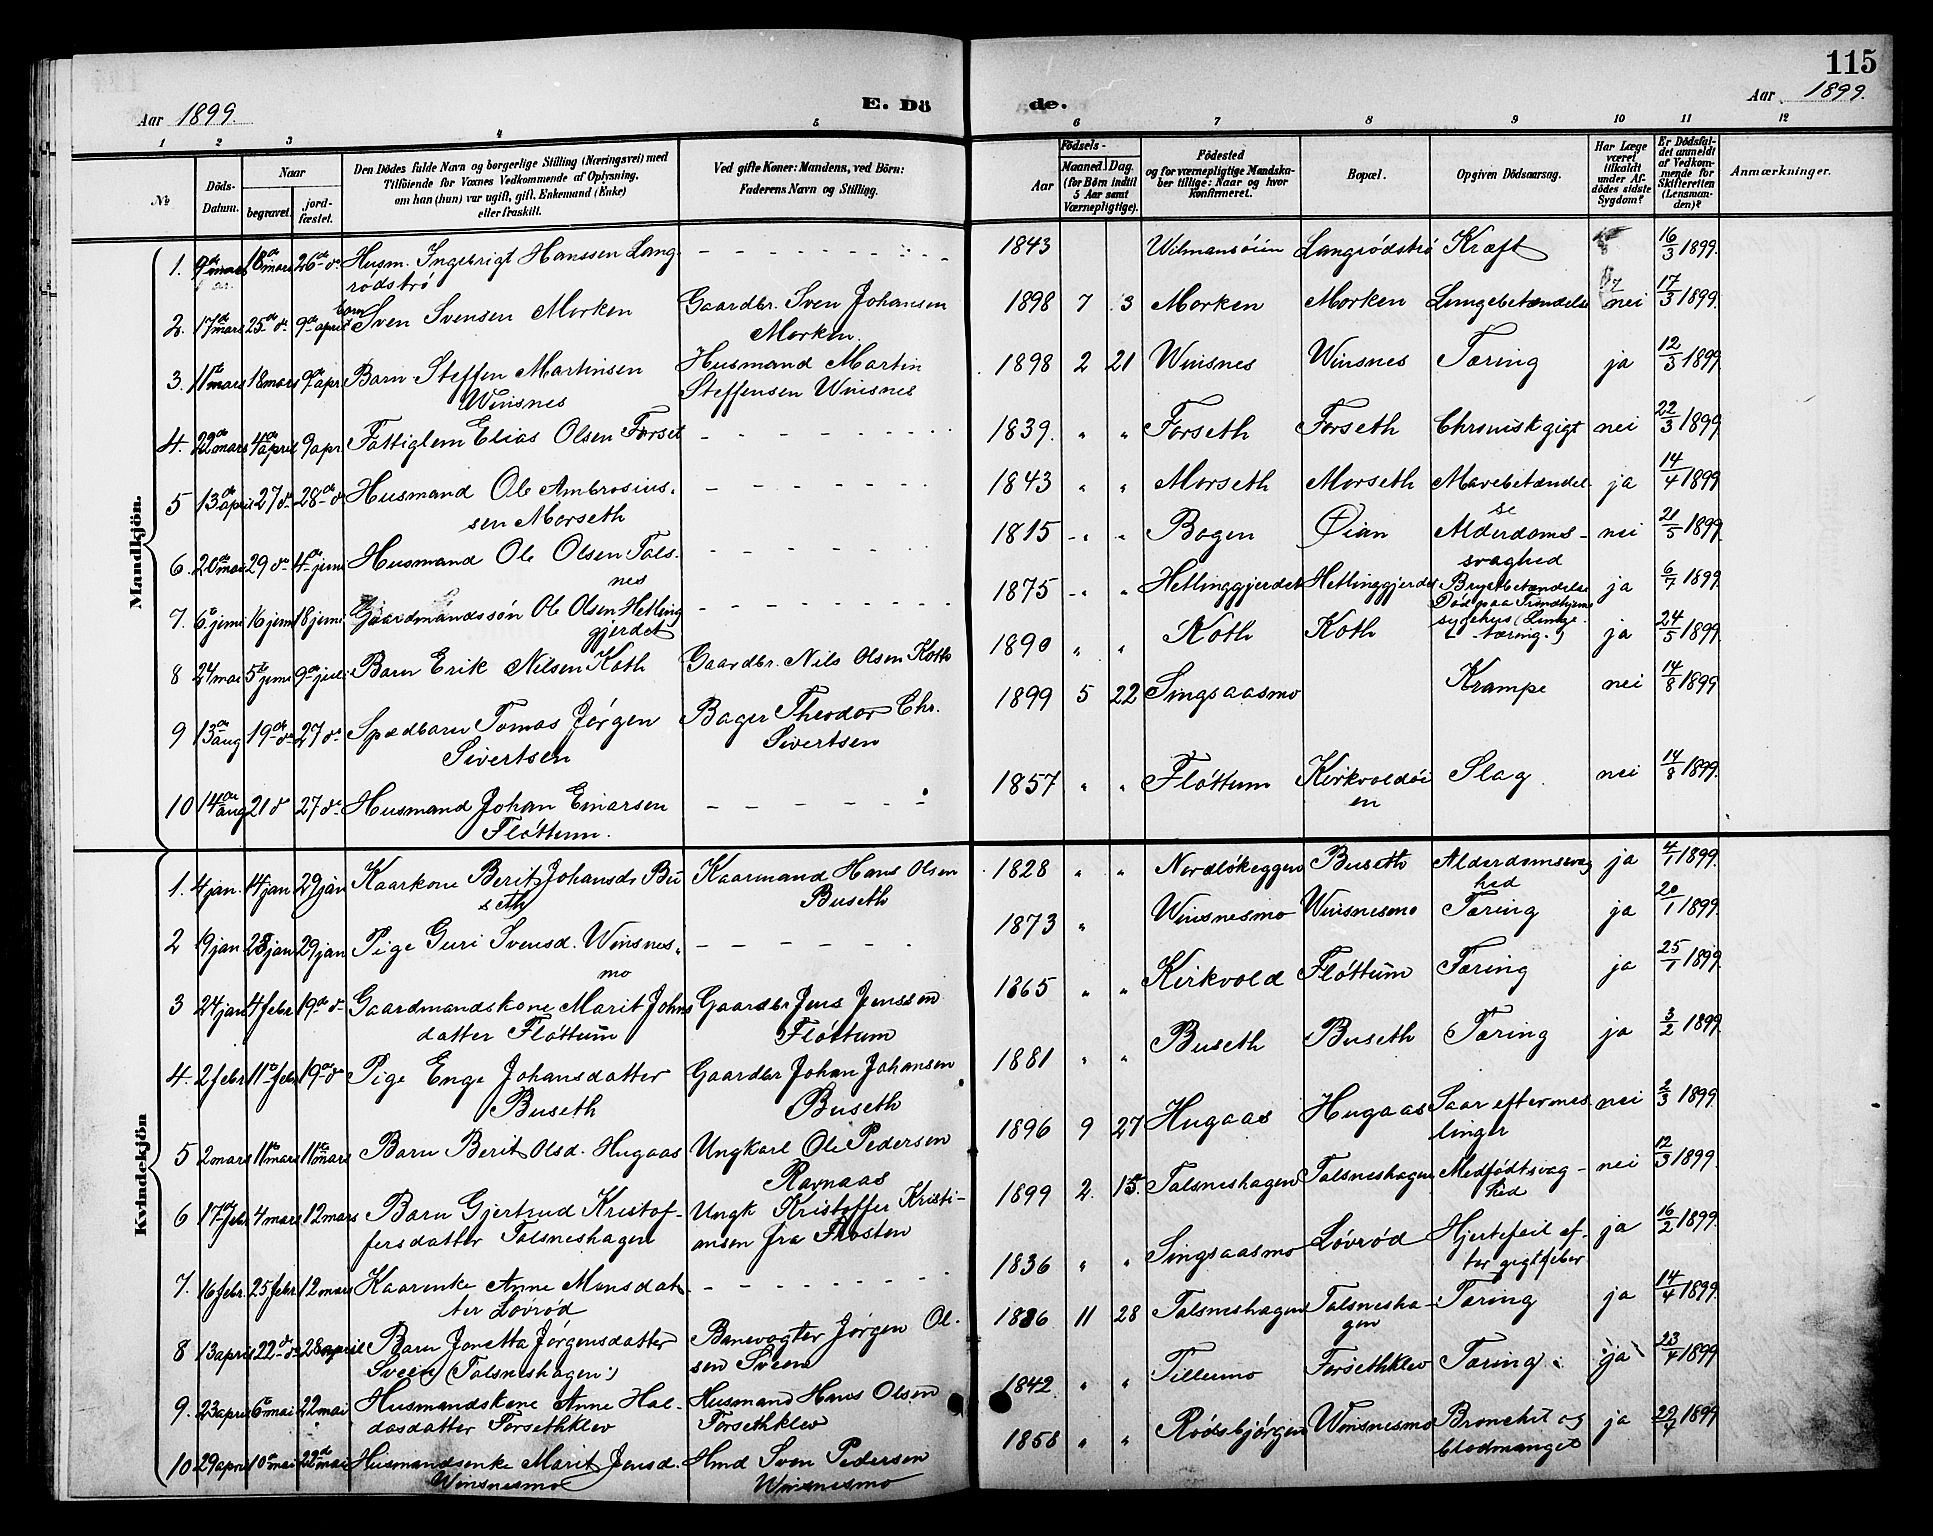 115
Aar 1899.
E. Dö
de.
Aar 1899.
1 2 3 4 5 6 7 8 9 10 11 12
№
Döds-Datum.
Naar
begravet.
jord-fæstet.
Den Dödes fulde Navn og borgerlige Stilling (Næringsvei) med
Tilföiende for Voxnes Vedkommende af Oplysning,
om han (hun) var ugift, gift, Enkemand (Enke)
eller fraskilt.
Ved gifte Koner: Mandens, ved Börn:
Faderens Navn og Stilling.
Födsels-
Aar
Maaned. Dag.
(for Börn indtil
5 Aar samt
Værnepligtige).
Födested
og for værnepligtige Mandska-
ber tillige: Naar og hvor
konfirmeret.
Bopæl.
Opgiven Dödsaarsag.
Har Læge
været
tilkaldt
under Af-
dödes sidste
Sygdom?
Er Dödsfal-
det anmeldt
af Vedkom-
mende for
Skifteretten
(Lensman-
den)?
Anmærkninger.
Mandkjön.
1. 9de mars 18de mars 26de d. Husm. Ingebrigt Hanssen Lang-
rödströ
1843 Wilmansöien Langrödströ Kræft 16/3 1899.
2. 17de mars 25de d. 9de april Barn Sven Svensen Morken Gaardbr. Sven Johansen
Morken
1898 7 3 Morken Morken Lungebetændelse nei 17/3 1899.
3. 11te mars 18 mars 9de apr Barn Steffen Martinsen
Winsnes
Husmand Martin
Steffensen Winsnes
1898 2 21 Winsnes Winsnes Tæring ja 12/3 1899
4. 22de mars 4de april 9 apr. Fattiglem Elias Olsen Forset
1839. " " Forseth Forseth Chronisk gigt nei 22/3 1899
5 13de april 27 d. 28de d. Husmand Ole Ambrosius-
sen Morseth
1843 " " Morseth Morseth Mavebetændel-
se
ja 14/4 1899
6. 20de mai 29 d. 4de juni Husmand Ole Olsen Tals-
nes
1815 " " Bogen Øian Alderdoms-
svaghed
nei 21/5 1899
7. 6te juni 16 juni 18 juni Gaardmandssön Ole Olsen Hetling
gjerdet
1875 " " Hetlinggjerdet Hetlinggjerdet Brystbetændelse ja 6/7 1899
8 24 mai 5te juni 9de juli Barn Erik Nilsen Koth Gaardbr. Nils Olsen Koth
1890 " " Koth Koth Död paa Trondhjems
sygehus (Lunge-
tæring.)
ja 24/5 1899
9 13de aug 19de d. 27 d. Spædbarn Tomas Jörgen
Sivertsen
Bager Theodor Chr.
Sivertsen
1899 5 22 Singsaasmo Krampe nei 14/8 1899
10 14de aug 21 d. 27 d. Husmand Johan Einarsen
Flöttum.
1857 " " Flöttum Kirkvoldöi
en
Slag. nei 14/8 1899.
Kvindekjön
1. 4 jan. 14 jan 29 jan Kaarkone Berit Johansd. Bu
seth
Kaarmand Hans Olsen
Buseth
1828 " " Nordlökeggen Buseth Alderdomssvag
hed
ja 4/1 1899
2 9 jan 28 jan 29 jan Pige Guri Svensd. Winsnes-
mo
1873 " Winsnesmo Winsnesmo Tæring ja 20/1 1899.
3 24 jan 4 febr 19de d. Gaardmandskone Marit Johns
datter Flöttum
Gaardbr Jens Jenssen
Flöttum
1865 " " Kirkvold Flöttum Tæring ja 25/1 1899.
4. 2 febr 11te febr 19de d Pige Enge Johansdatter
Buseth
Gaardbr Johan Johansen
Buseth
1881 " " Buseth Buseth Tæring ja 3/2 1899.
5 2 mars 11te mars 11te mars Barn Berit Olsd. Hugaas Ungkarl Ole Pedersen
Ravnaas
1896 9 27 Hugaas Hugaas Saar efter mes
linger
nei 2/3 1899.
6 17de febr 4 mars 12 mars Barn Gjertrud Kristof-
fersdatter Talsneshagen
Ungk Kristoffer Kristi-
ansen fra Frosten
1899 2. 15. Talsneshagen Talsneshagen Medfödt svag-
hed
nei 12/3 1899.
7. 16 febr. 25 febr 12 mars Kaarenke Anne Monsdat
ter Lövröd
1836 " " Singsaasmo Lövröd Hjertefeil ef-
ter gigtfeber
ja 16/2 1899.
8 13 april 22de d. 28 april Barn Jonetta Jörgensdatter
Sveen (Talsneshagen)
Banevogter Jörgen Ol-
sen Sveen
1886 11 28 Talsneshagen Talsnesha-
gen
Tæring ja 14/4 1899
9. 23 april 6te mai 22 mai Husmandskone Anne Hal-
dosdatter Forsethklev
Husmand Hans Olsen
Forsethklev
1842. " " Tillermo Forsethklev Tæring ja 23/4 1899
10 29 april 10de mai 22de mai Husmandsenke Marit Jensd.
Winsnesmo
Hmd Sven Pedersen
Winsnesmo
1858 " " Rödsbjörgen Winsnesmo Bronchit og
blodmangel
ja 29/4 1899